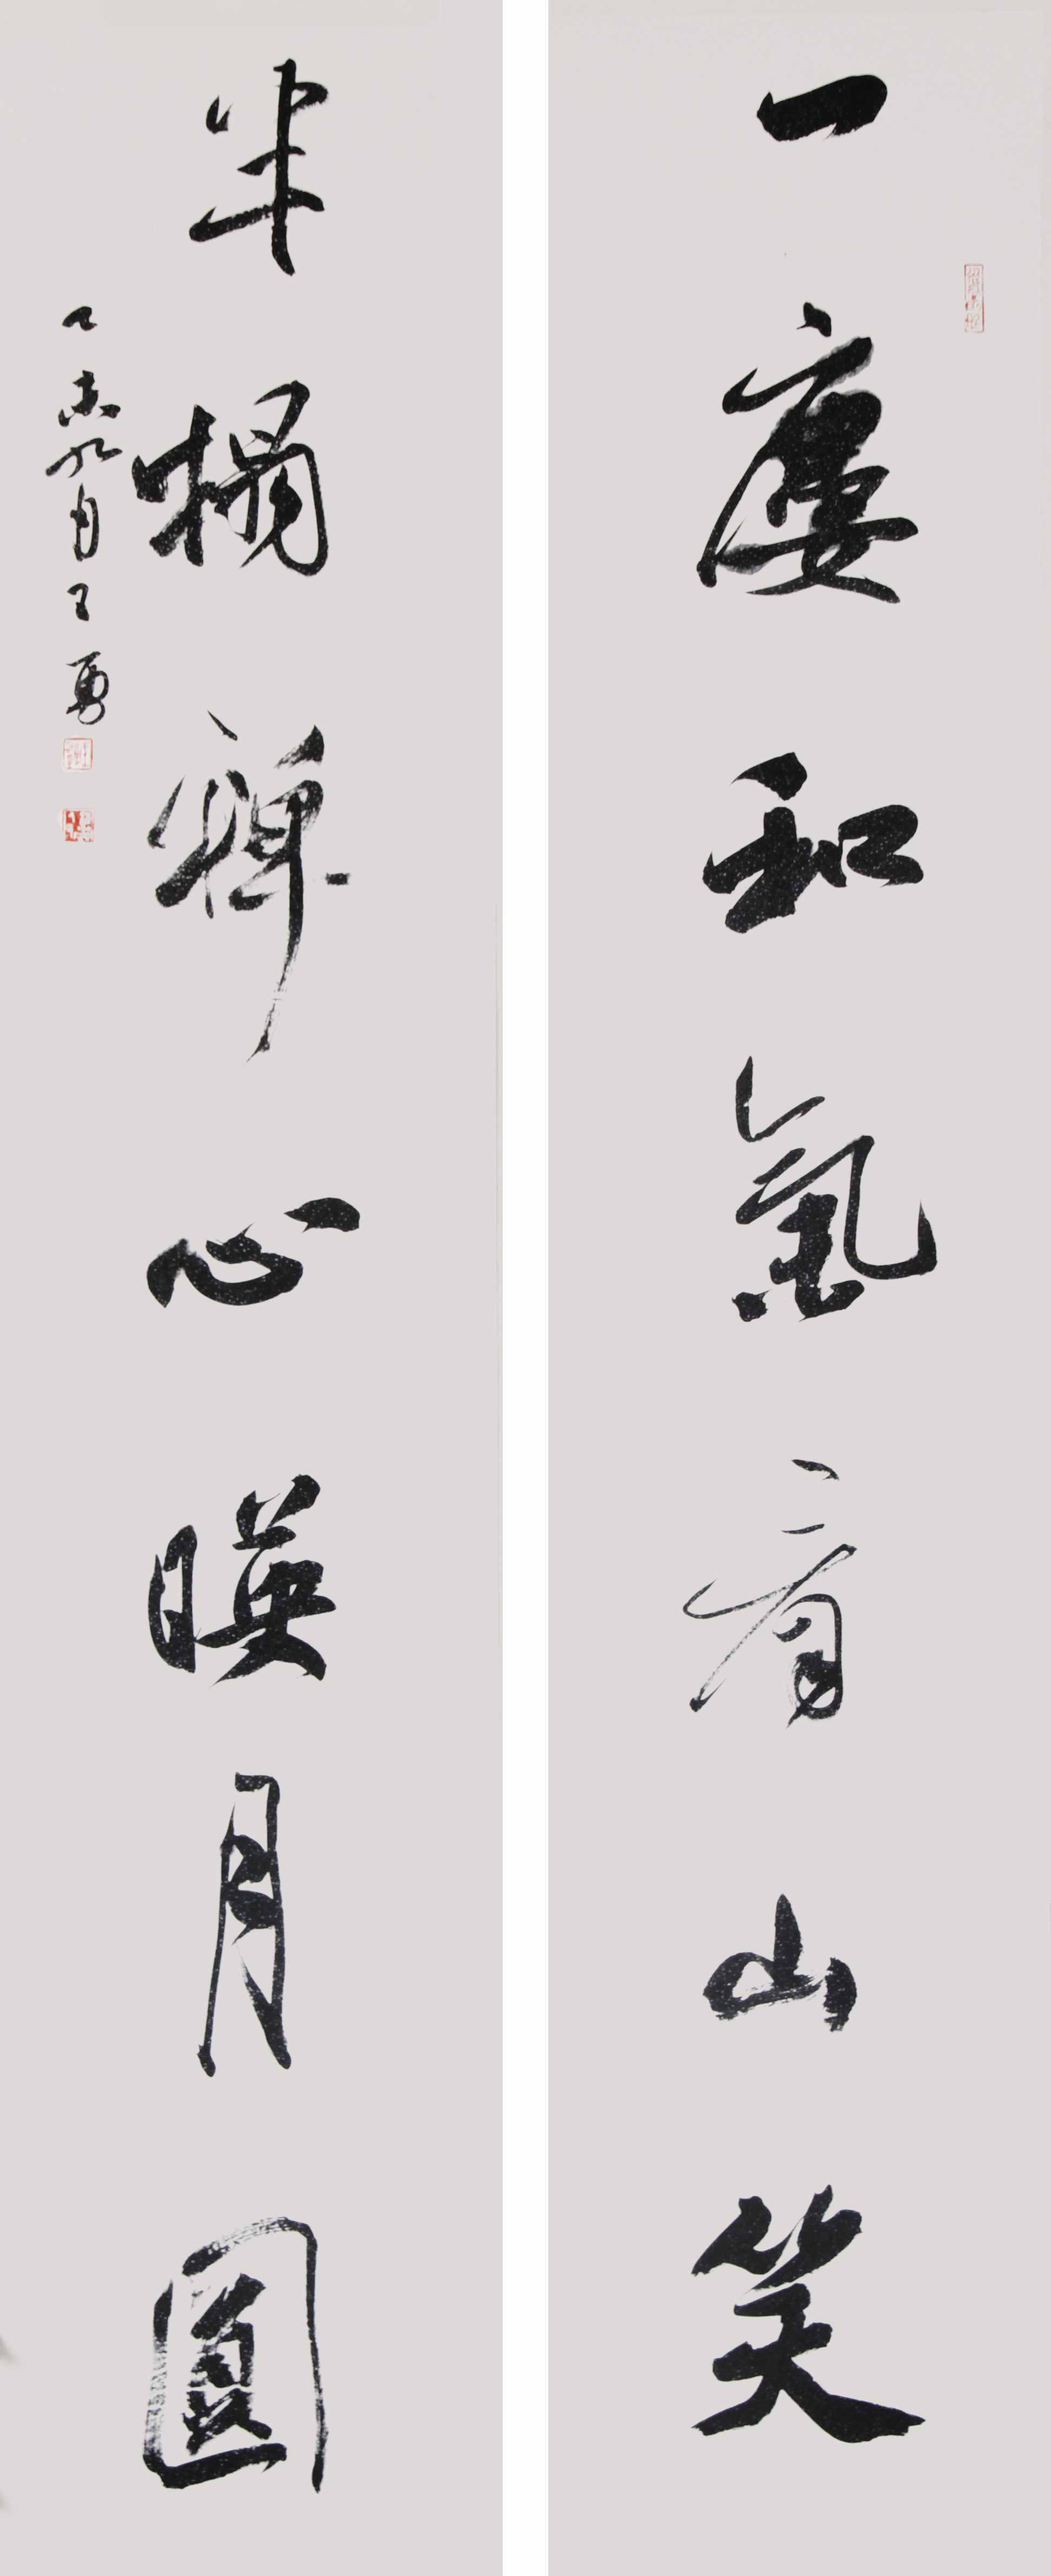 一廈和氣看山笑
半榻禪心暎月圓
乙未九月王勇